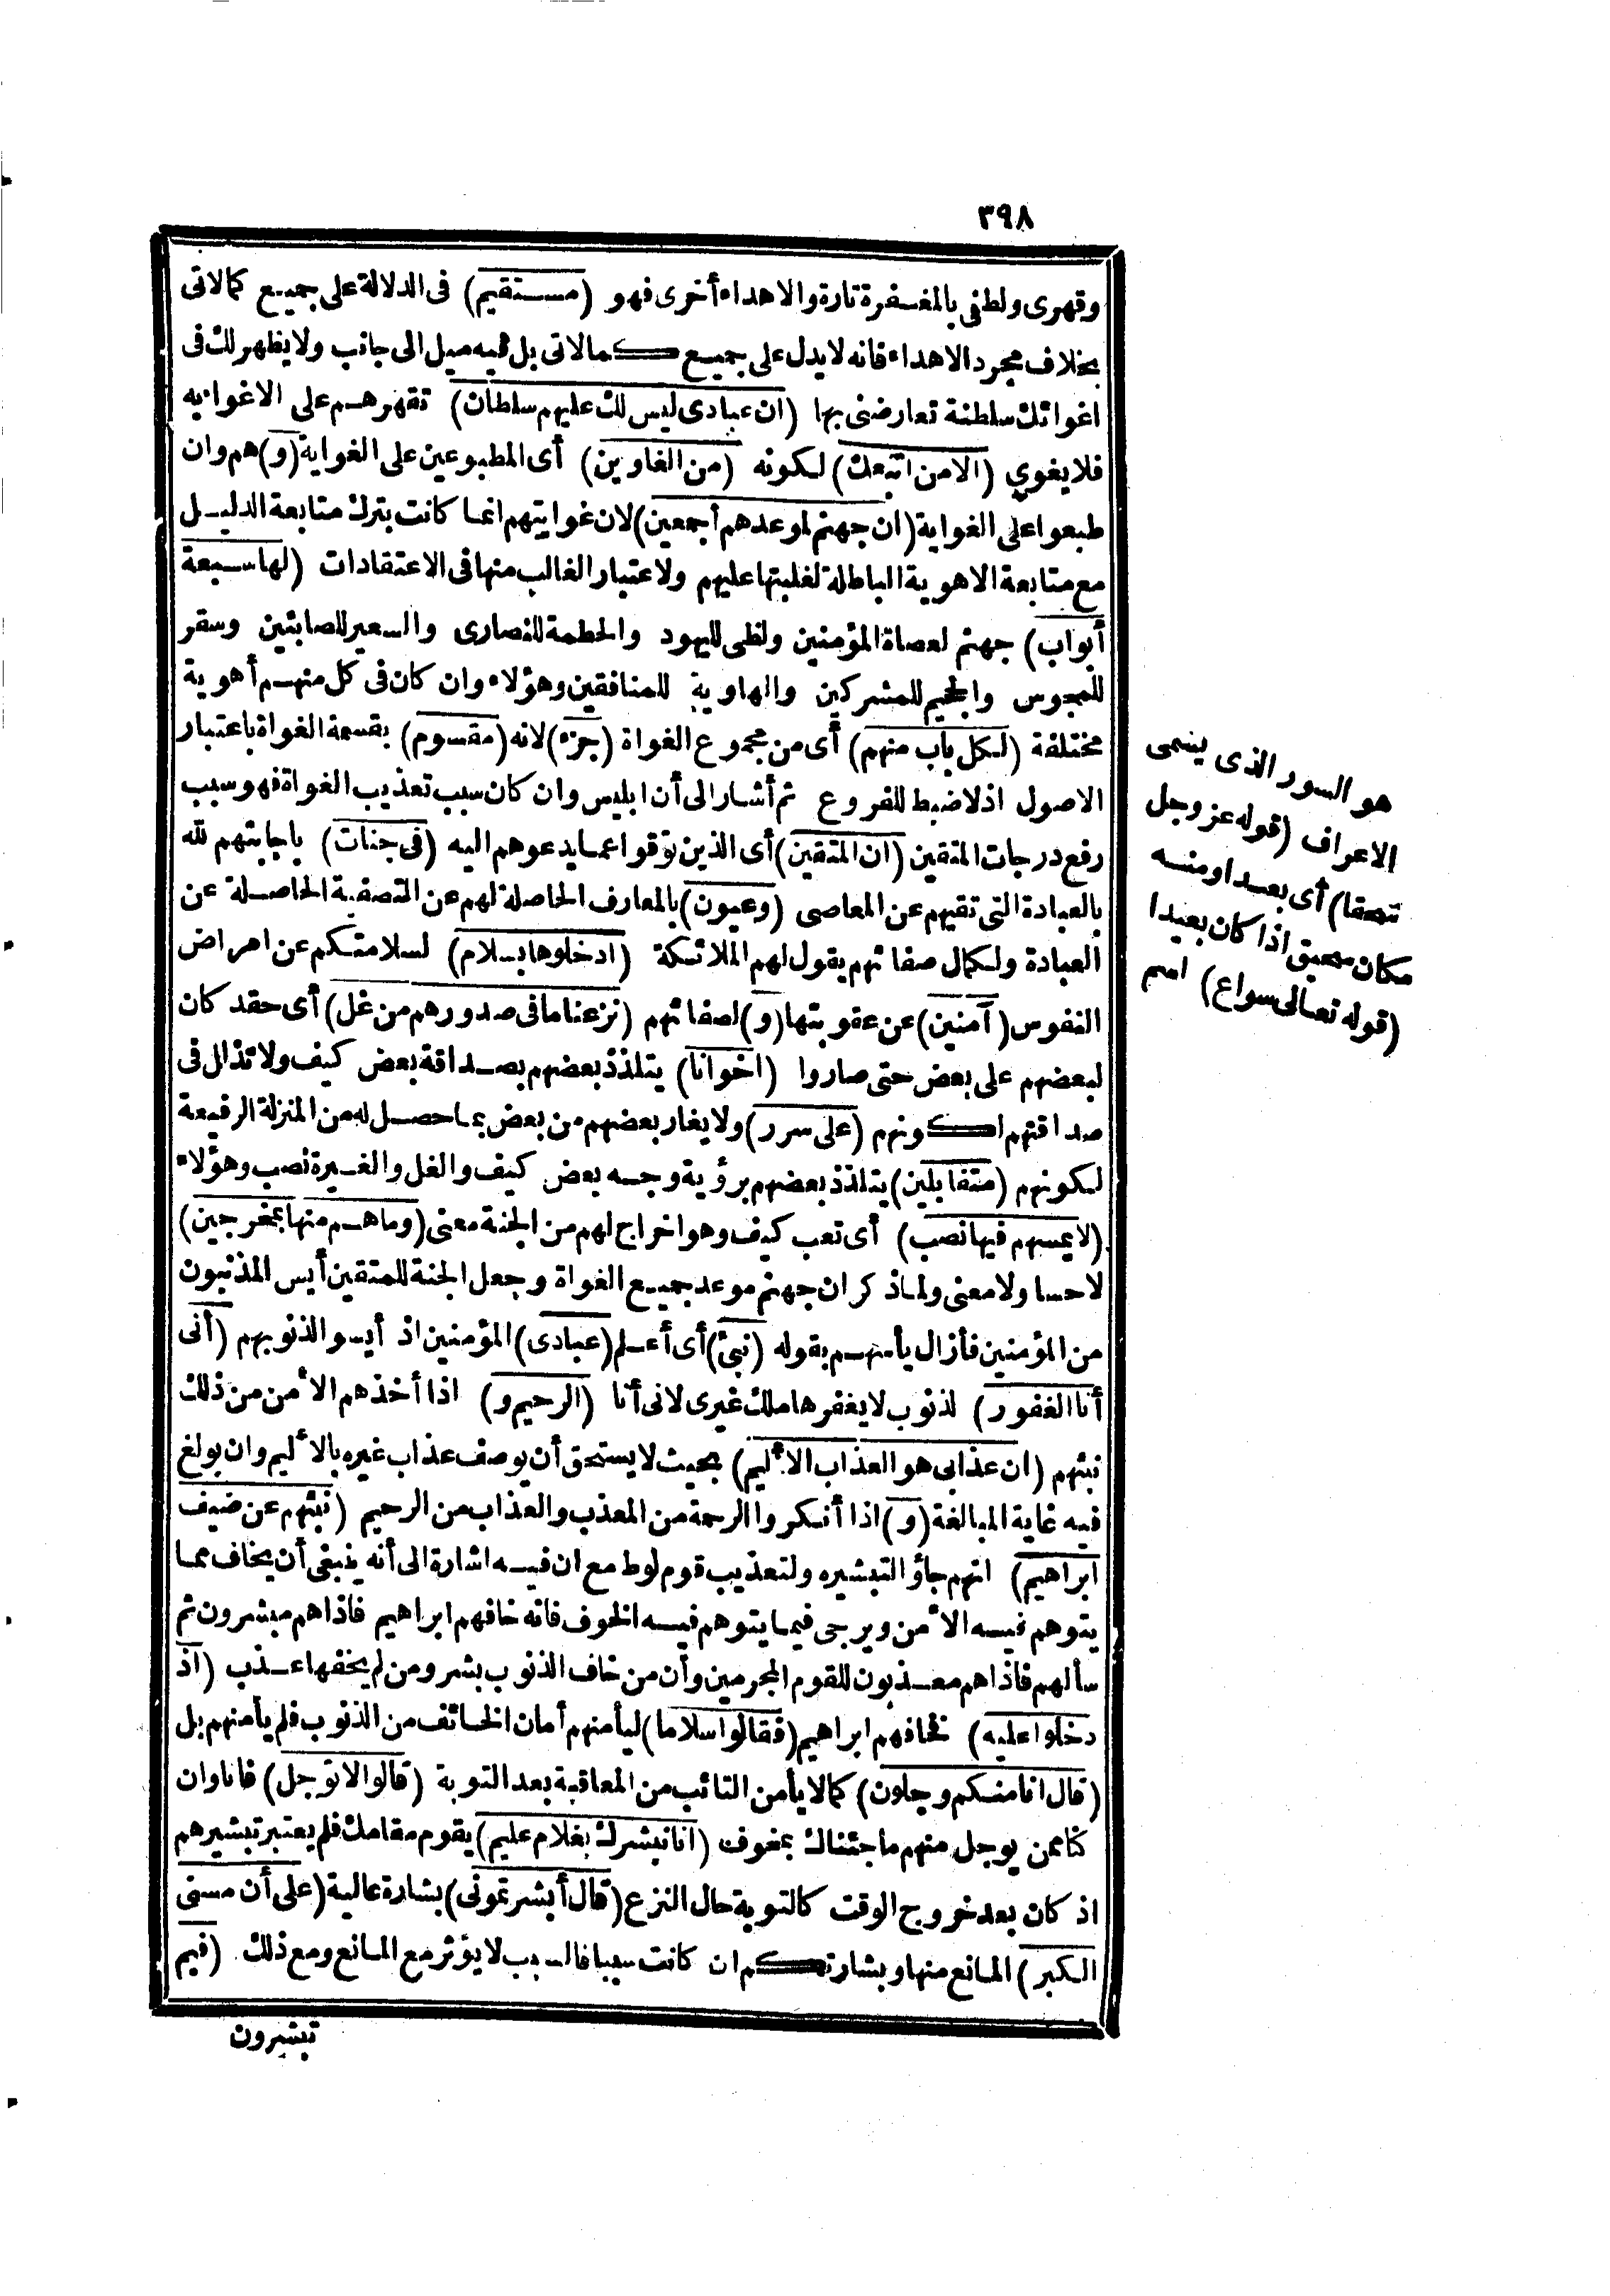 ٣٩٨
وقهرى ولطفى بالمغفرة تارة والاهداء أخرى فهو (مستقيم) فى الدلالة على جميع كمالاتى
بخلاف مجرد الاهداء فانه لا يدل على جميع كمالاتى بل فيه ميل الى جانب ولا يظهر لك فى
اغوائك سلطنة تعارضنى بها (ان عبادى ليس لك عليهم سلطان) تقهرهم على الاغواء به
فلا يغوي (الا من اتبعك) لكونه (من الغاوين) أى المطبوعين على الغواية (و) هم وان
طبعوا على الغواية (ان جهنم لموعدهم أجمعين) لان غوايتهم انما كانت بترك متابعة الدليل
مع متابعة الاهوية الباطلة لغلبتها عليهم ولا عتبار الغالب منها فى الاعتقادات (لها سبعة
أبواب) جهنم لعصاة المؤمنين ولظى لليهود والحطمة للنصارى والسعير للصابئين وسقر
للمجوس والجحيم للمشركين والهاوية للمنافقين وهؤلاء وان كان فى كل منهم أهوية
مختلفة (لكل باب منهم) أى من مجموع الغواة (جزء) لانه (مقسوم) بقسمة الغواة باعتبار
الاصول اذ لا ضبط للفروع ثم أشار الى أن ابليس وان كان سبب تعذيب الغواة فهو سبب
رفع درجات المتقين (ان المتقين) أى الذين توقوا عما يدعوهم اليه (فى جنات) باجابتهم لله
بالعبادة التى تقيهم عن المعاصى (وعيون) بالمعارف الحاصلة لهم عن التصفية الحاصلة عن
العبادة ولكمال صفائهم يقول لهم الملائكة (ادخلوها بسلام) لسلامتكم عن امراض
النفوس (آمنين) عن عقوبتها (و) لصفائهم (نزعنا ما فى صدورهم من غل) أى حقد كان
لبعضهم على بعض حتى صاروا (اخوانا) يتلذذ بعضهم بصداقة بعض كيف ولا تذلل فى
صداقتهم لكونهم (على سرر) ولا يغار بعضهم من بعض بما حصل له من المنزلة الرفيعة
لكونهم (متقابلين) يتلذذ بعضهم برؤية وجه بعض كيف والغل والغيرة نصب وهؤلاء
(لا يمسهم فيها نصب) أى تعب كيف وهو اخراج لهم من الجنة معنى (وما هم منها بمخرجين)
لا حسا ولا معنى ولما ذكر ان جهنم موعد جميع الغواة وجعل الجنة للمتقين أيس المذنبون
من المؤمنين فأزال يأسهم بقوله (نبئ) أى أعلم (عبادى) المؤمنين اذ أيسوا لذنوبهم (أنى
أنا الغفور) لذنوب لا يغفرها ملك غيرى لانى أنا (الرحيم و) اذا أخذهم الأمن من ذلك
نبئهم (ان عذابى هو العذاب الأليم) بحيث لا يستحق أن يوصف عذاب غيره بالأليم وان بولغ
فيه غاية المبالغة (و) اذا أنكروا الرحمة من المعذب والعذاب من الرحيم (نبئهم عن ضيف
ابراهيم) انهم جاؤا لتبشيره ولتعذيب قوم لوط مع ان فيه اشارة الى أنه ينبغى أن يخاف مما
يتوهم فيه الأمن ويرجى فيما يتوهم فيه الخوف فانه خافهم ابراهيم فاذا هم مبشرون ثم
سألهم فاذا هم معذبون للقوم المجرمين وأن من خاف الذنوب بشر ومن لم يخفها عذب (اذ
دخلوا عليه) فخافهم ابراهيم (فقالوا سلاما) ليأمنهم أمان الخائف من الذنوب فلم يأمنهم بل
(قال انا منكم وجلون) كما لا يأمن التائب من المعاقبة بعد التوبة (قالوا لا توجل) فانا وان
كنا ممن يوجل منهم ما جئناك بمخوف (انا نبشرك بغلام عليم) يقوم مقامك فلم يعتبر تبشيرهم
اذ كان بعد خروج الوقت كالتوبة حال النزع (قال أبشرتمونى) بشارة عالية (على أن مسنى
الكبر) المانع منها وبشارتكم ان كانت سببا فالسبب لا يؤثر مع المانع ومع ذلك (فبم
تبشرون
هو السور الذى يسمى
الاعراف (قوله عز وجل
عميقا) أى بعيدا ومنه
مكان عميق اذا كان بعيدا
(قوله تعالى سواع) اسم